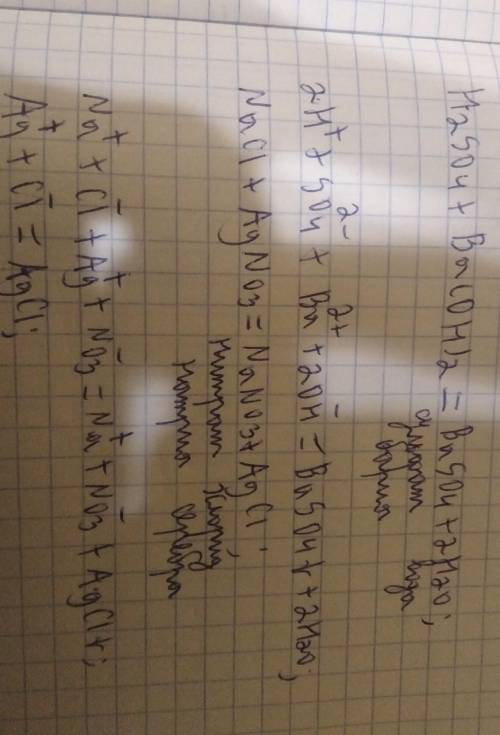 H2SO4 + Ba(OH)2 = BaSO4 + 2H2O;
сульфат вода
бария
2H⁺ + SO4²⁻ + Ba²⁺ + 2OH⁻ = BaSO4↓ + 2H2O;
NaCl + AgNO3 = NaNO3 + AgCl;
нитрат хлорид
натрия серебра
Na⁺ + Cl⁻ + Ag⁺ + NO3⁻ = Na⁺ + NO3⁻ + AgCl↓;
Ag⁺ + Cl⁻ = AgCl;